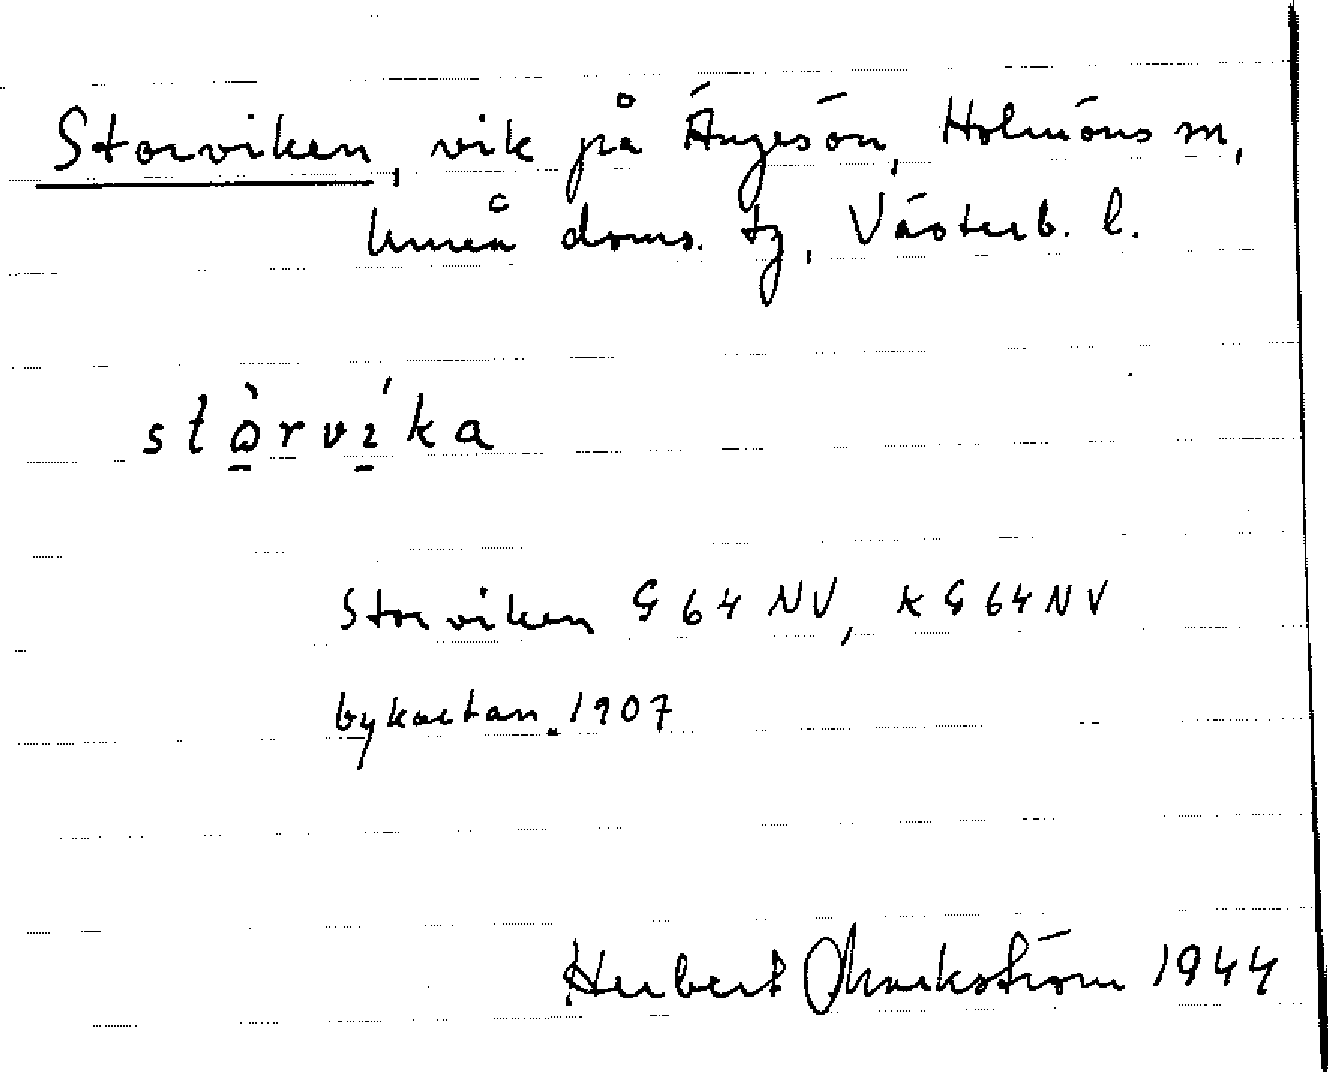 Storviken, vik på Ängesön, Holmöns sn,
Umeå doms. tg, Västerb. l.
stòrví̱ka
Storviken G 64 NV, K G 64 NV
bykartan. 1907
Herbert Markström 1944